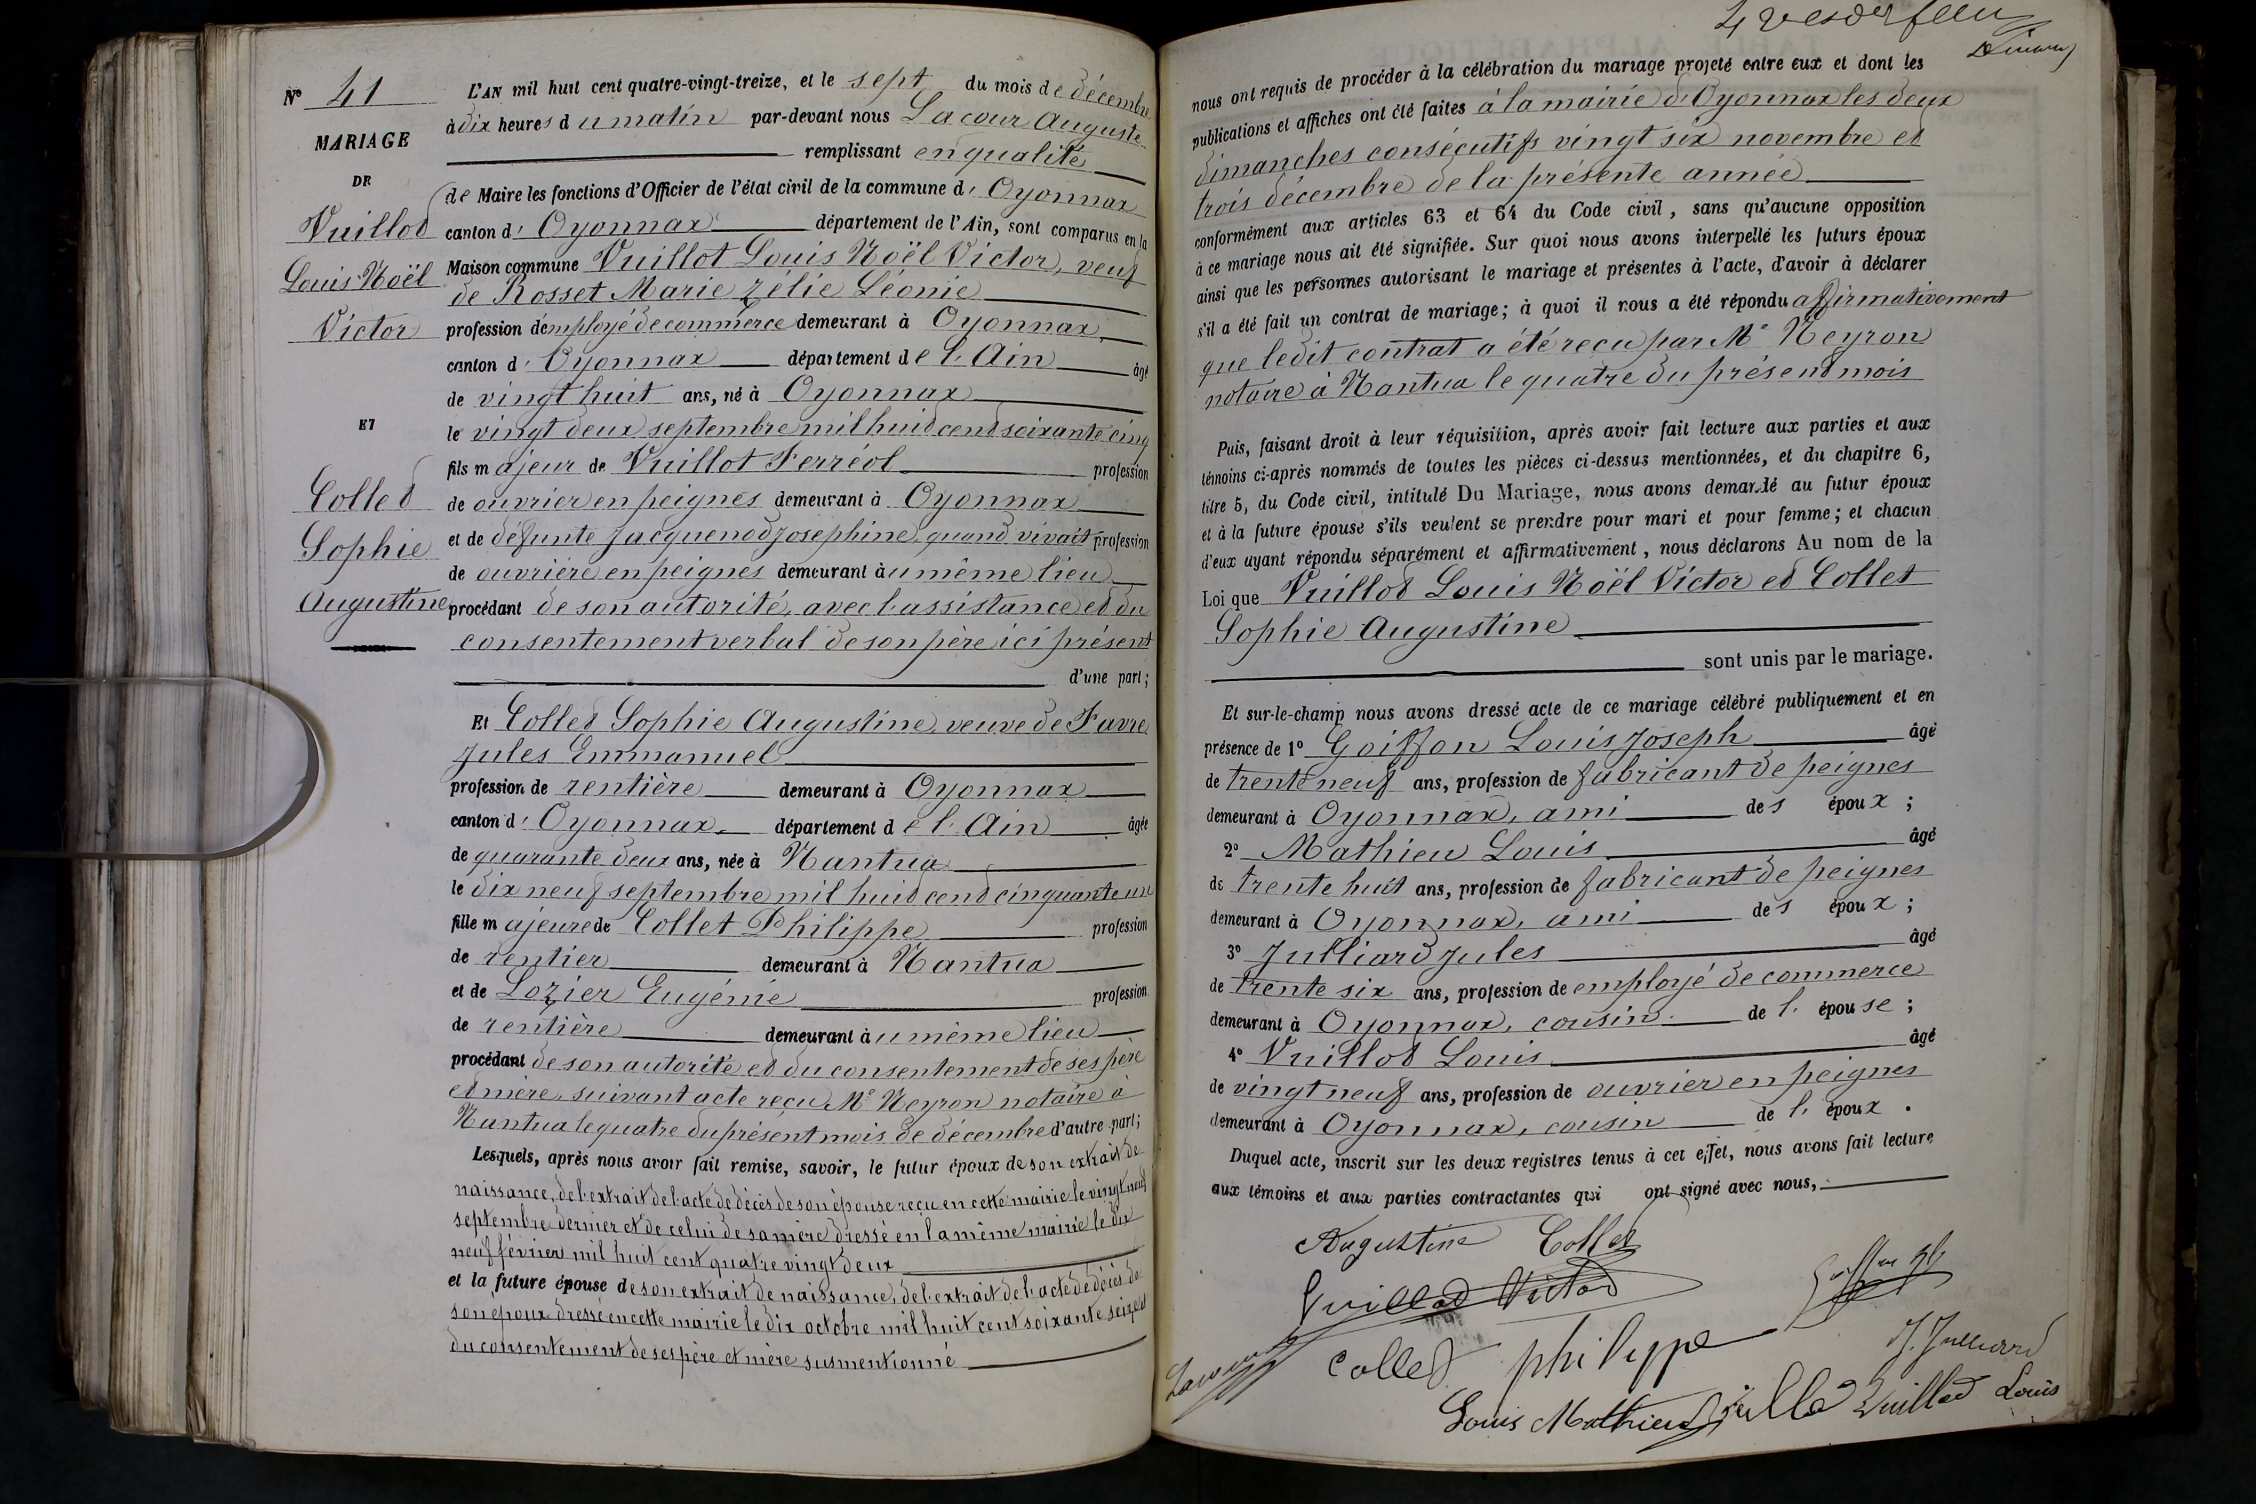 N° 41
MARIAGE
DE
Vuillot
Louis Noël
Victor
ET
Collet
Sophie
Augustine
L'AN mil huit cent quatre-vingt-treize, et le sept du mois de décembre
à dix heures du matin par-devant nous Lacour Auguste
remplissant en qualité
de Maire les fonctions d'Officier de l'état civil de la commune d' Oyonnax
canton d' Oyonnax département de l'Ain, sont comparus en la
Maison commune Vuillot Louis Noël Victor, veuf
de Rosset Marie Zélie Léonie
profession d'employé de commerce demeurant à Oyonnax,
canton d' Oyonnax département de l'Ain âgé
de vingt huit ans, né à Oyonnax
le vingt deux septembre mil huit cent soixante cinq
fils majeur de Vuillot Ferréol profession
de ouvrier en peignes demeurant à Oyonnax
et de défunte Jacquenod Josephine, quand vivait profession
de ouvrière en peignes demeurant au même lieu
procédant de son autorité, avec l'assistance et du
consentement verbal de son père ici présent
d'une part;
Et Collet Sophie Augustine, veuve de Favre
Jules Emmanuel
profession de rentière demeurant à Oyonnax
canton d' Oyonnax, département de l'Ain âgée
de quarante deux ans, née à Nantua
le dix neuf septembre mil huit cent cinquante un
fille majeure de Collet Philippe profession
de rentier demeurant à Nantua
et de Lozier Eugénie profession
de rentière demeurant au même lieu
procédant de son autorité et du consentement de ses père
et mère, suivant acte reçu Me Neyron notaire à
Nantua le quatre du présent mois de décembre d'autre part;
Lesquels, après nous avoir fait remise, savoir, le futur époux de son extrait de
naissance, de l'extrait de l'acte de décès de son épouse reçu en cette mairie le vingt neuf
septembre dernier et de celui de sa mère dressé en la même mairie le dix
neuf février mil huit cent quatre vingt deux
et la future épouse de son extrait de naissance, de l'extrait de l'acte de décès de
son époux dressé en cette mairie le dix octobre mil huit cent soixante seize et
du consentement de ses père et mère susmentionné
nous ont requis de procéder à la célébration du mariage projeté entre eux et dont les
publications et affiches ont été faites à la mairie d'Oyonnax les deux
dimanches consécutifs vingt six novembre et
trois décembre de la présente année
conformément aux articles 63 et 64 du Code civil, sans qu'aucune opposition
à ce mariage nous ait été signifiée. Sur quoi nous avons interpellé les futurs époux
ainsi que les personnes autorisant le mariage et présentes à l'acte, d'avoir à déclarer
s'il a été fait un contrat de mariage; à quoi il nous a été répondu affirmativement
que ledit contrat a été reçu par Me Neyron
notaire à Nantua le quatre du présent mois
Puis, faisant droit à leur réquisition, après avoir fait lecture aux parties et aux
témoins ci-après nommés de toutes les pièces ci-dessus mentionnées, et du chapitre 6,
titre 5, du Code civil, intitulé Du Mariage, nous avons demandé au futur époux
et à la future épouse s'ils veulent se prendre pour mari et pour femme; et chacun
d'eux ayant répondu séparément et affirmativement, nous déclarons Au nom de la
Loi que Vuillot Louis Noël Victor et Collet
Sophie Augustine
sont unis par le mariage.
Et sur-le-champ nous avons dressé acte de ce mariage célébré publiquement et en
présence de 1° Goiffon Louis Joseph âgé
de trente neuf ans, profession de fabricant de peignes
demeurant à Oyonnax, ami des époux;
2° Mathieu Louis âgé
de trente huit ans, profession de fabricant de peignes
demeurant à Oyonnax, ami des époux;
3° Julliard Jules âgé
de trente six ans, profession de employé de commerce
demeurant à Oyonnax, cousin de l'épouse;
4° Vuillot Louis âgé
de vingt neuf ans, profession de ouvrier en peignes
demeurant à Oyonnax, cousin de l'époux.
Duquel acte, inscrit sur les deux registres tenus à cet effet, nous avons fait lecture
aux témoins et aux parties contractantes qui ont signé avec nous,
Augustine Collet
Vuillod Victor
Collet philippe
J. Julliard
Louis Mathieu
Vuillod Louis